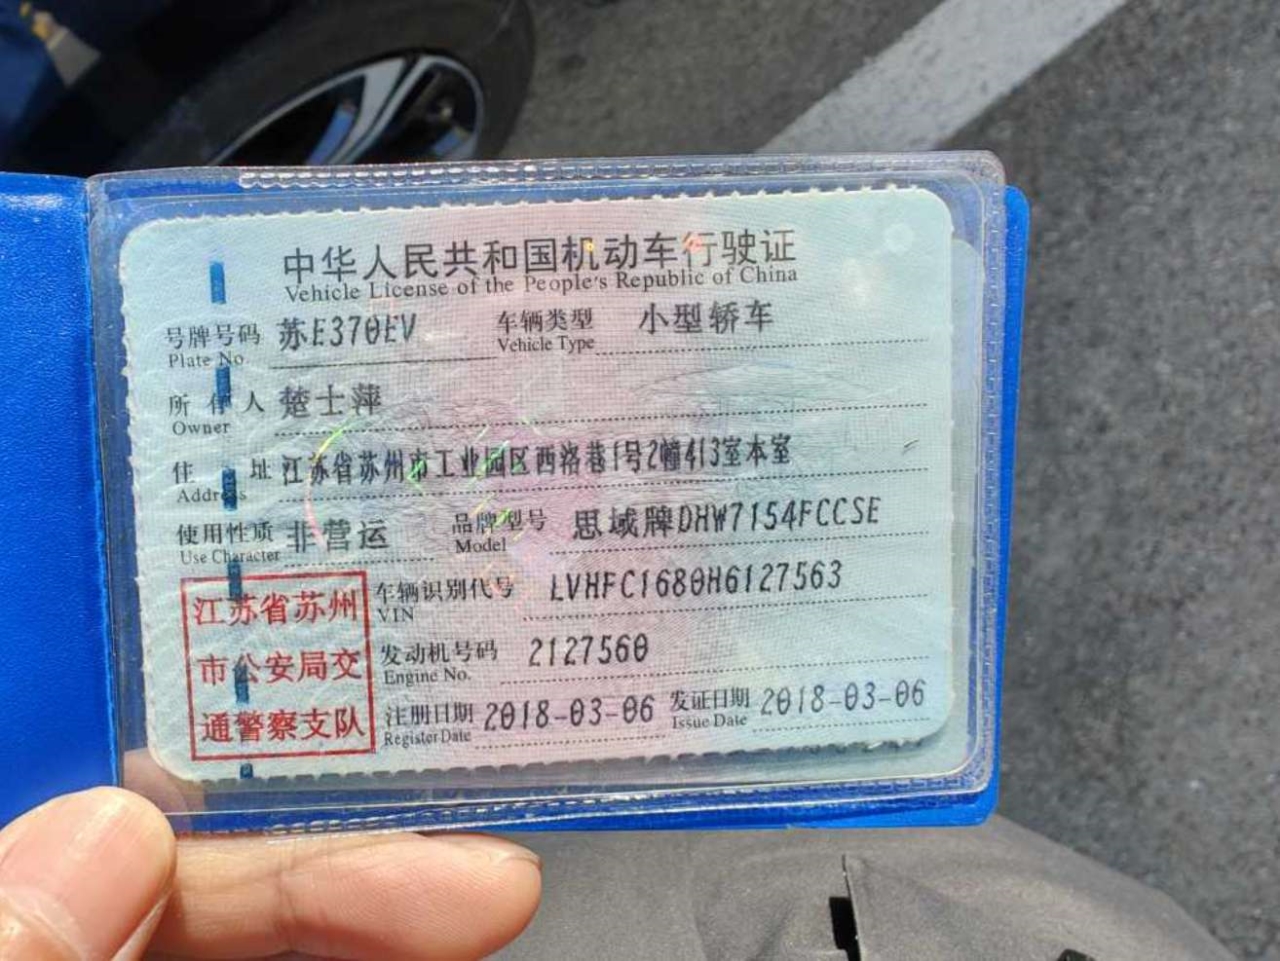 中华人民共和国机动车行驶证
Vehicle License of the People's Republic of China
号牌号码 苏E370EV 车辆类型 小型轿车
Plate No. Vehicle Type
所有人 楚士萍
Owner
住址 江苏省苏州市工业园区西洛巷1号2幢413室本室
Address
使用性质 非营运 品牌型号 思域牌DHW7154FCCSE
Use Character Model
车辆识别代号 LVHFC1680H6127563
VIN
发动机号码 2127560
Engine No.
注册日期 2018-03-06 发证日期 2018-03-06
Register Date Issue Date
江苏省苏州
市公安局交
通警察支队